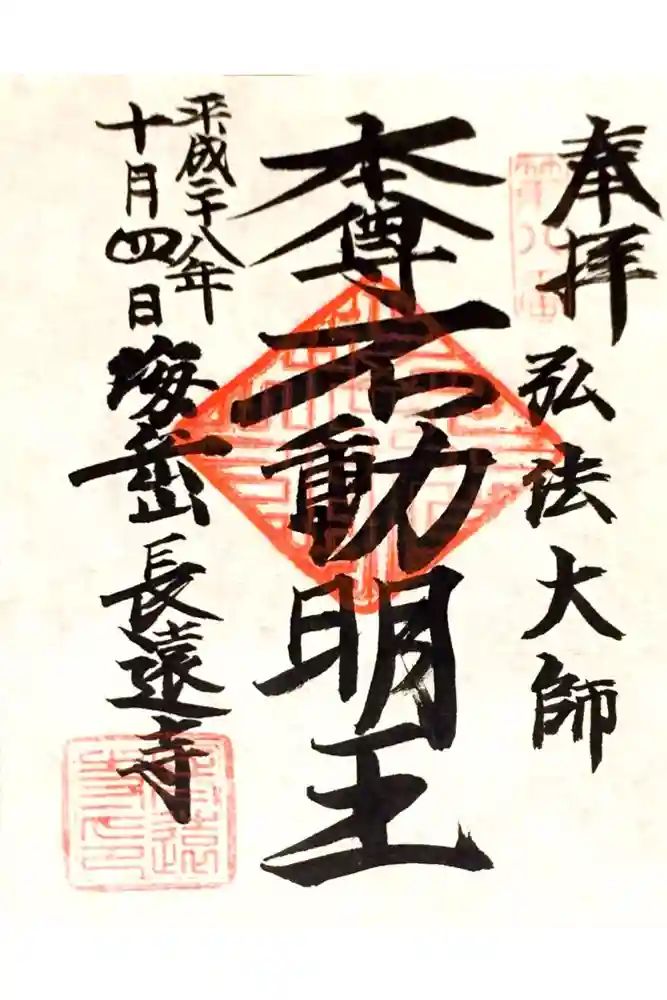 奉拝
弘法大師
本尊不動明王
平成二十八年
十月四日
海岳長遠寺